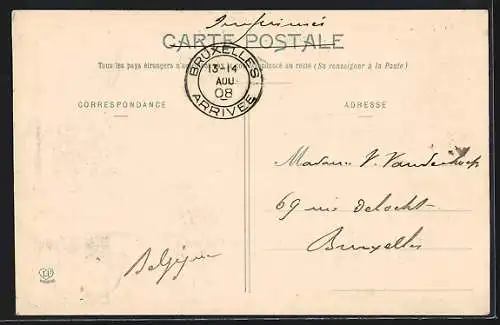 Imprimés
CARTE POSTALE
Tous les pays étrangers n'ac au recto (Se renseigner à la Poste)
BRUXELLES
13-14
AOU
08
ARRIVEE
CORRESPONDANCE
ADRESSE
Madame V. Vanderhoop
69 rue Delocht
Bruxelles
Belgique